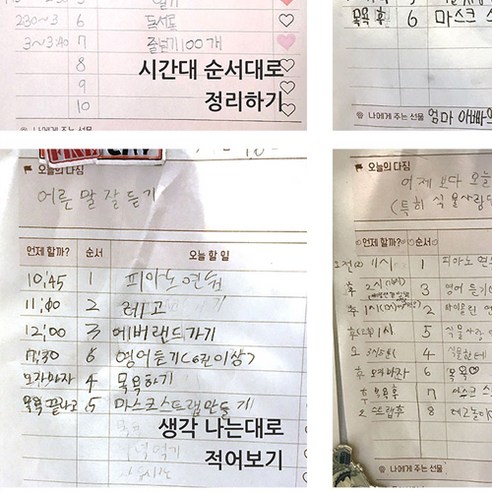 2:30~3 6 독서포
3~3:40 7 줄넘기 100개
8
9
10
시간대 순서대로
정리하기
나에게 주는 선물
목욕후 6 마스크 스
나에게 주는 선물 엄마 아빠
오늘의 다짐
어른 말 잘 듣기
언제 할까? 순서 오늘 할 일
10:45 1 피아노 연습
11:00 2 레고
12:00 3 에버랜드가기
17:30 6 영어듣기
오자마자 4 목욕하기
목욕 끝나고 5 마스크스트랩만들기
생각 나는대로
적어보기
오늘의 다짐
어제보다 오늘
(특히 식물사랑
언제할까? 순서
오전 11시 1 피아노 연
3 영어 듣기
2 바이올린 연
5 식물사랑
4
후 오자마자 6 목욕♡
후 목욕후 7 마스크 스
스트랩후 8 레고놀이
나에게 주는 선물